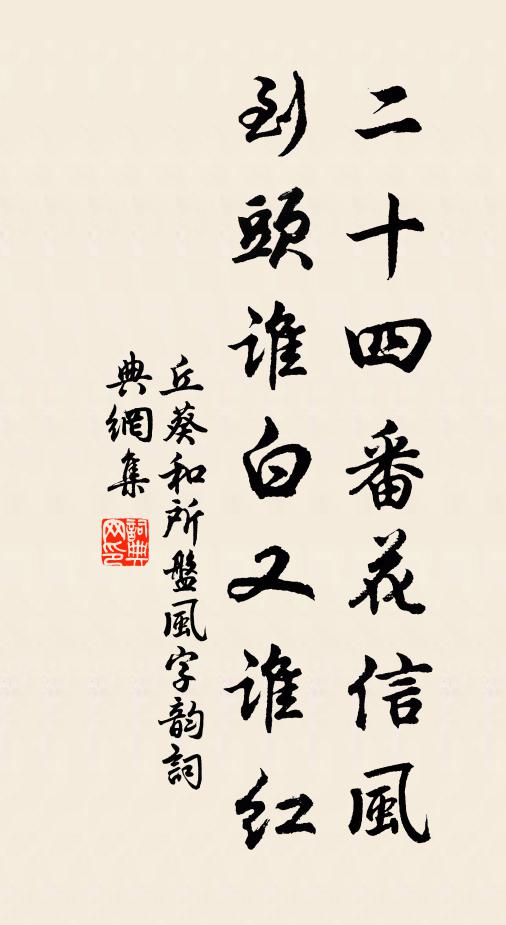 二十四番花信風
到頭誰白又誰紅
丘葵和所盤風字韵詞
典網集
詞典
网印